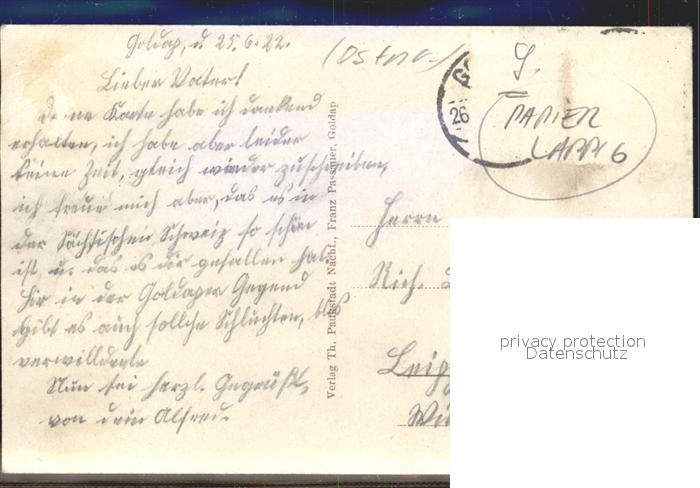 Goldap, d. 25.6.22.
Lieber Vater!
Deine Karte habe ich dankend
erhalten, ich habe aber leider
keine Zeit, gleich wieder zuschreiben,
ich freue mich aber, das es in
der Sächsischen Schweiz so schön
ist, u. das es dir gefallen hat.
Hir in der Goldaper Gegend
gibt es auch sollche Schluchten, blos
verwillderte
Nun sei herzl. Gegrüßt,
von dein Alfred.
Verlag Th. Paukstadt Nachf., Franz Passauer, Goldap
26
PAPIER
Herrn
Rich.
Leip
privacy protection
Datenschutz